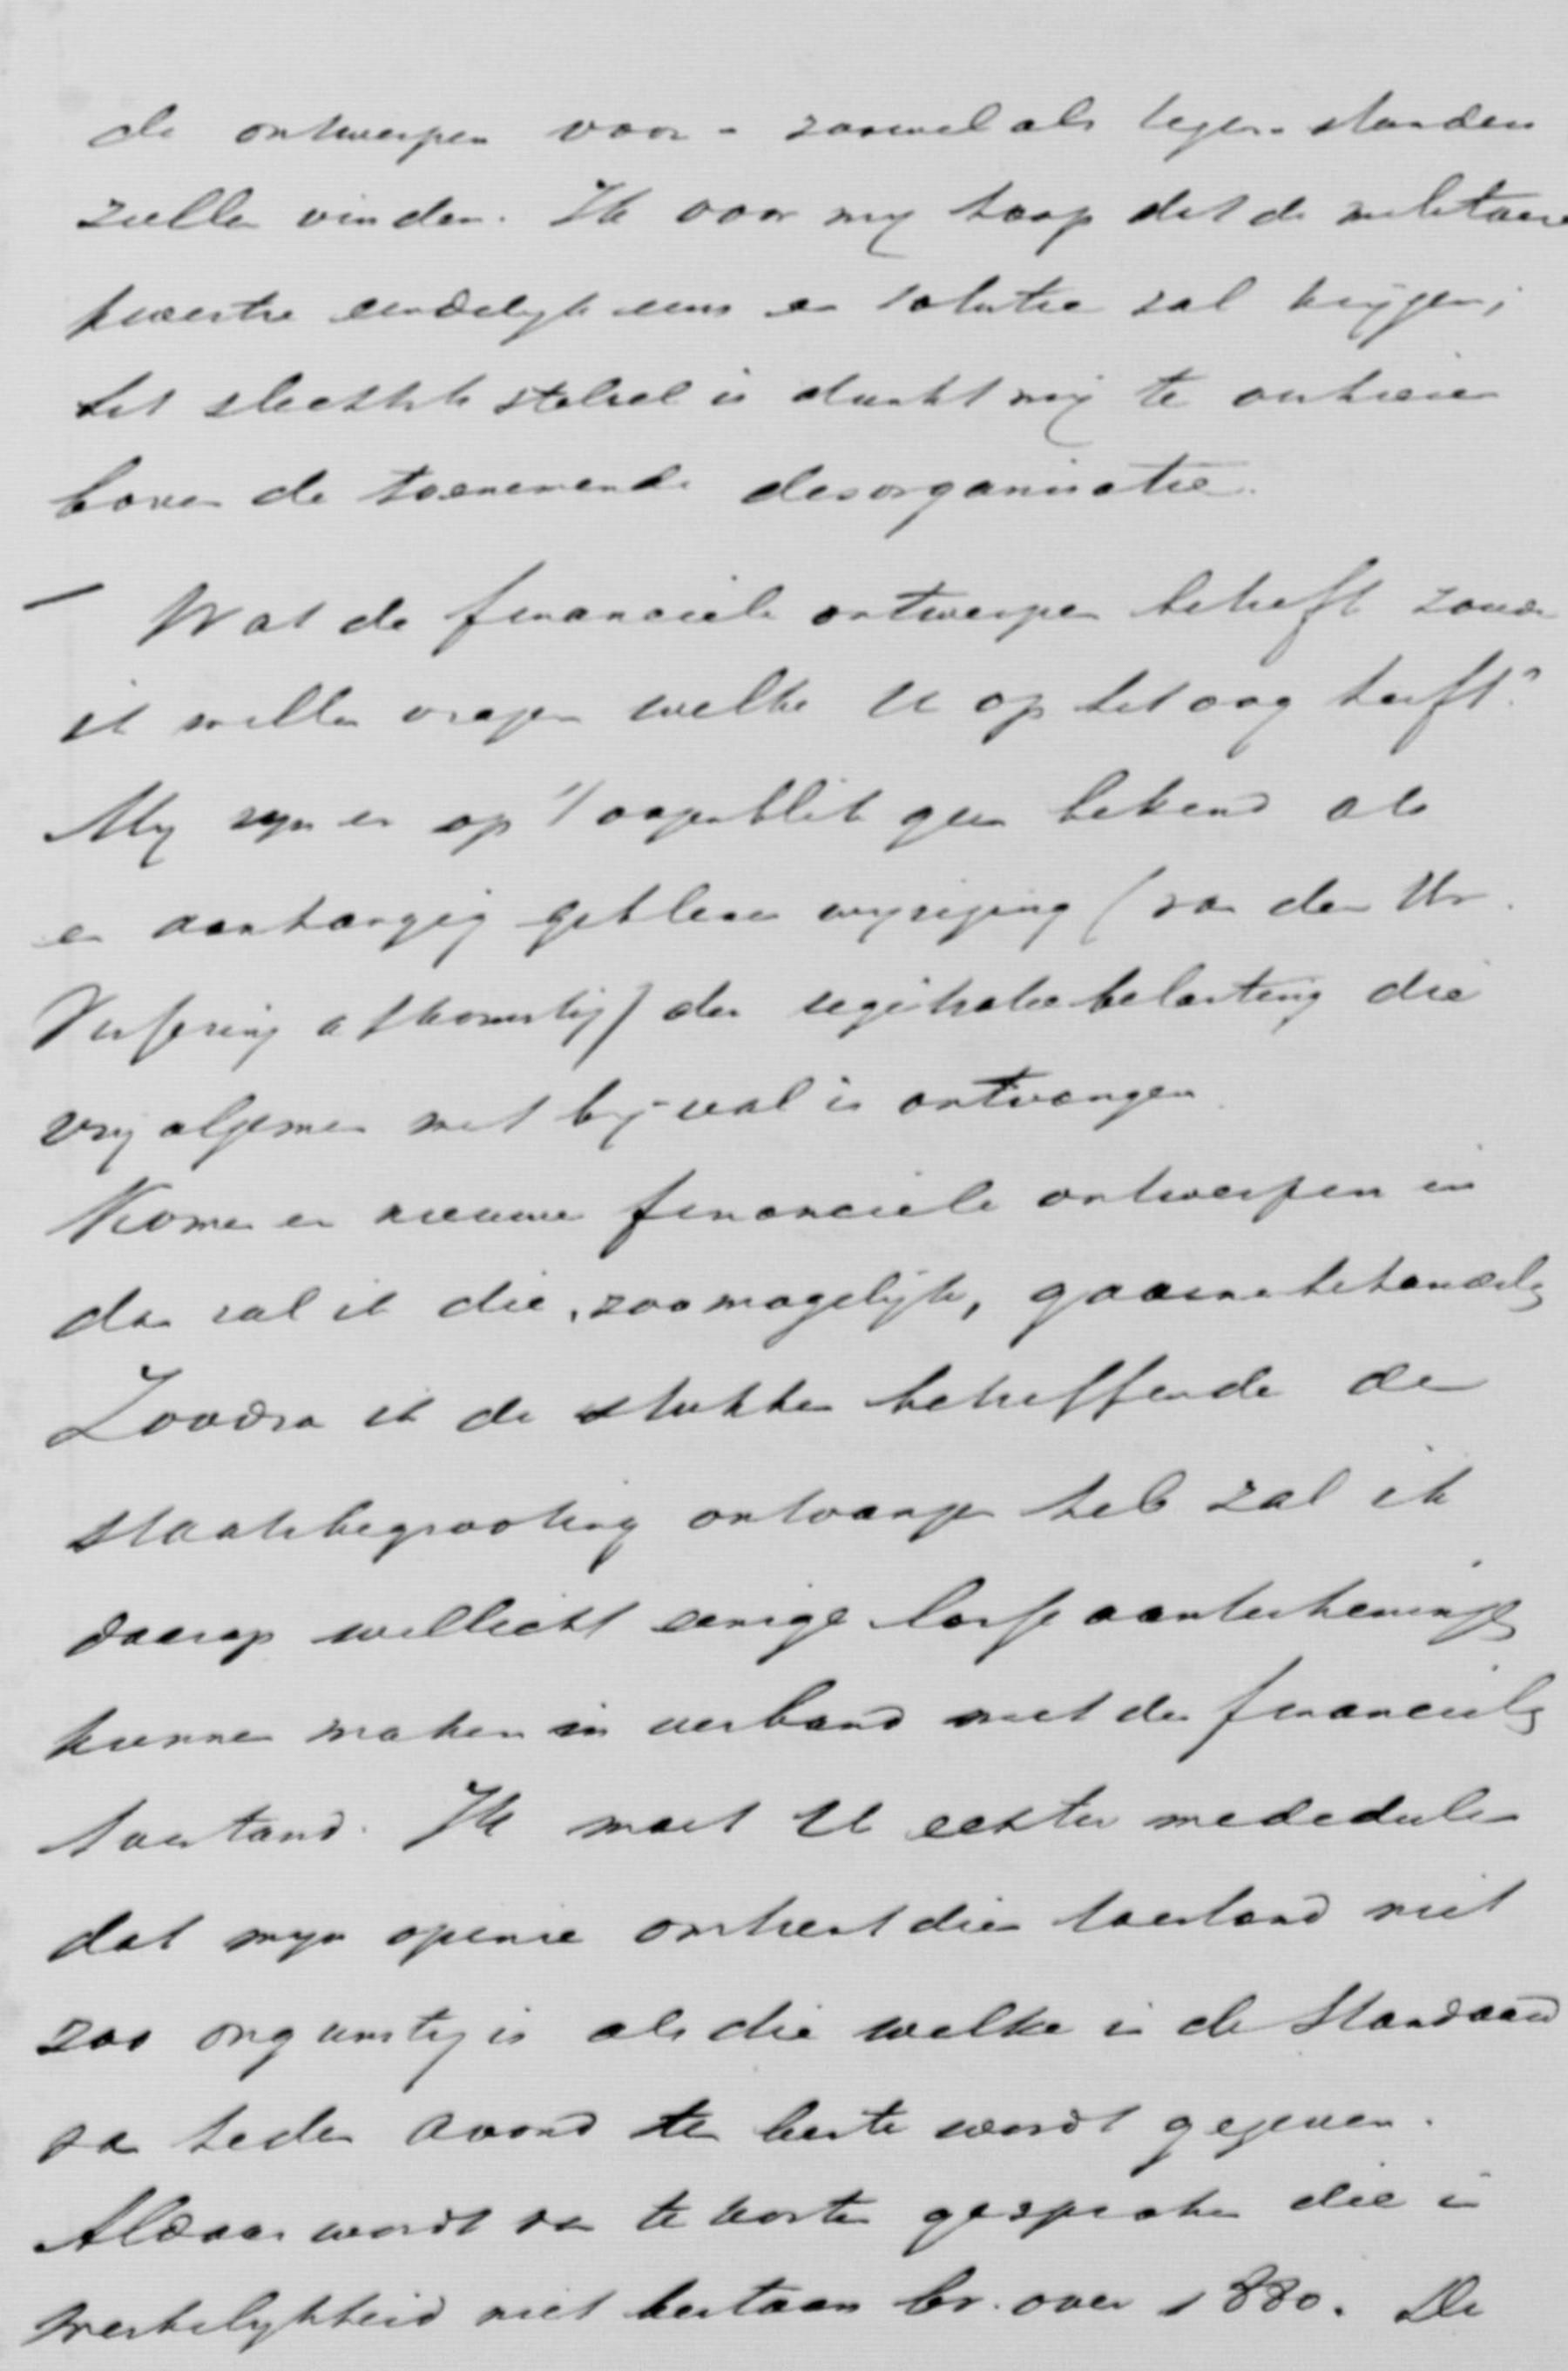 de ontwerpen voor- zoowel als tegenstanders
zullen vinden. Ik voor my hoop dat de militaire
kwestie eindelyk eens een solutie zal krygen;
het slechtste stelsel is dunkt my te verkiezen
boven de toenemende desorganisatie.
– Wat de financieele ontwerpen betreft zoude
ik willen vragen welke U op het oog heeft?
My zyn er op 't oogenblik geen bekend als
een aanhangig gebleven wyziging (van den Hr.
Vissering afkomstig) der registratiebelasting die
vry algemeen met by-val is ontvangen
Komen er nieuwe financieele ontwerpen in
dan zal ik die, zoo mogelyk, gaarne behandelen
Zoodra ik de stukken betreffende de
staatsbegrooting ontvangen heb zal ik
daarop wellicht eenige losse aanteekeningen
kunnen maken in verband met den financieelen
toestand. Ik moet U echter mededeelen
dat myn opinie omtrent dien toestand niet
zoo ongunstig is als die welke in de Standaard
van heden avond ten beste wordt gegeven.
Aldaar wordt van te korten gesproken die in
werkelykheid niet bestaan bv. over 1880. De